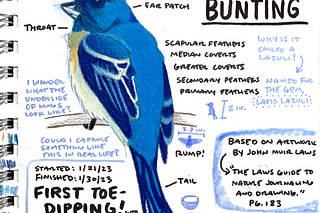 EAR PATCH
BUNTING
THROAT
SCAPULAR FEATHERS
MEDIAN COVERTS
GREATER COVERTS
SECONDARY FEATHERS
PRIMARY FEATHERS
WHY IS IT
CALLED A
LAZULI?
NAMED FOR
THE GEM,
LAPIS LAZULI
I WONDER
WHAT THE
UNDERSIDE
OF WINGS
LOOK LIKE?
5 IN.
COULD I CAPTURE
SOMETHING LIKE
THIS IN REAL LIFE?
RUMP!
TAIL
STARTED: 1/21/23
FINISHED: 1/30/23
FIRST TOE-
DIPPING!
BASED ON ARTWORK
BY JOHN MUIR LAWS
"THE LAWS GUIDE TO
NATURE JOURNALING
AND DRAWING."
PG. 183